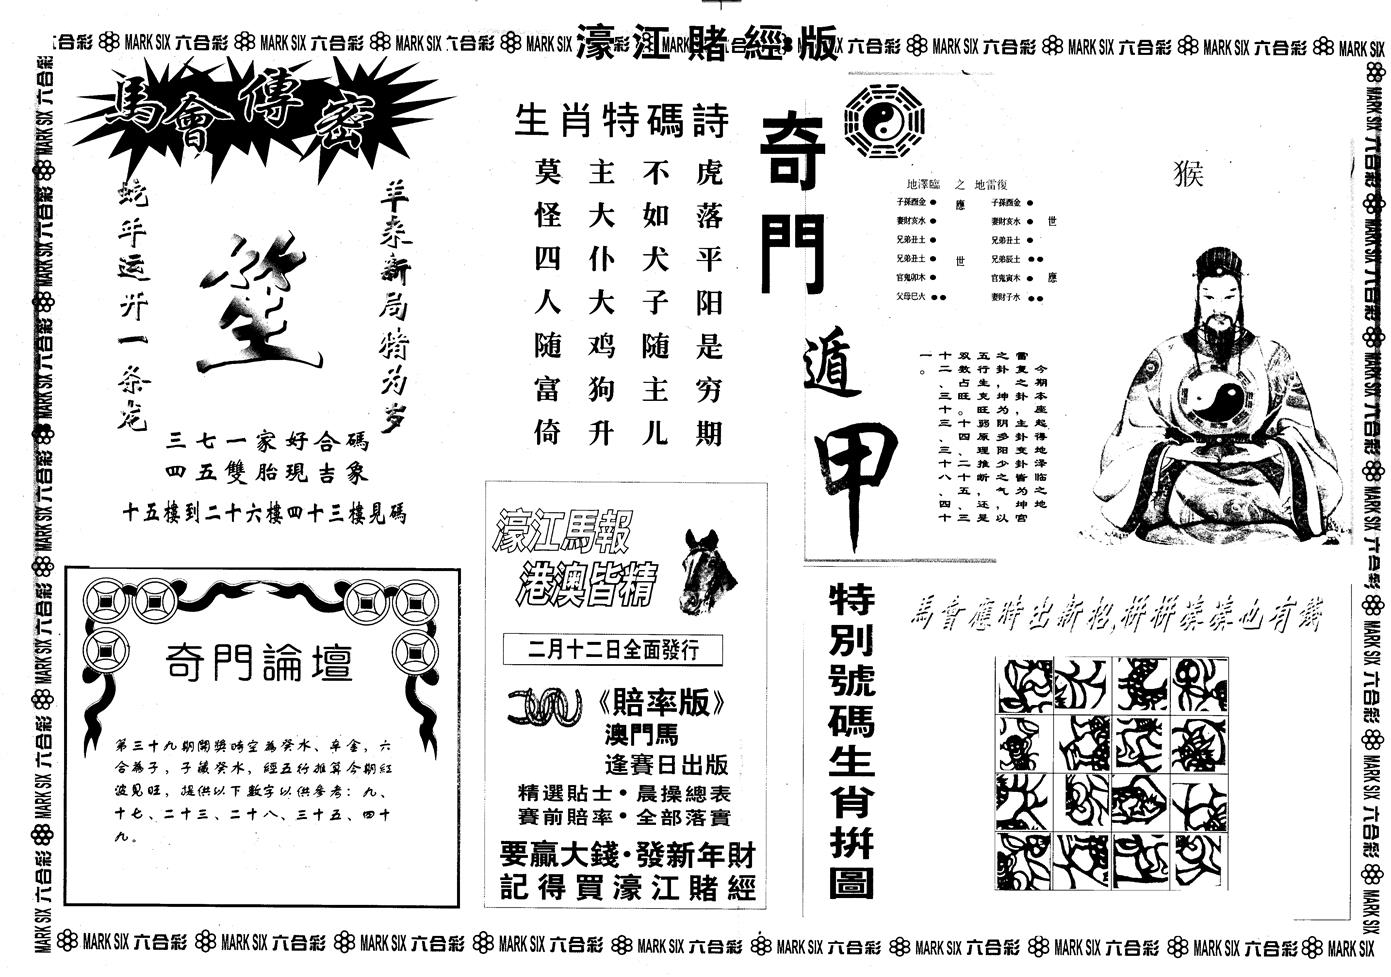 濠江賭經版
六合彩 MARK SIX 六合彩 MARK SIX 六合彩 MARK SIX 六合彩 MARK SIX
六合彩 MARK SIX 六合彩 MARK SIX 六合彩 MARK SIX 六合彩 MARK SIX
馬會傳密
羊來新局猪为岁
蛇年运开一条龙
三七一家好合碼
四五雙胎現吉象
十五樓到二十六樓四十三樓見碼
奇門論壇
第三十九期開獎時空為癸水、辛金,六
合為子,子藏癸水,經五行推算今期紅
波見旺,提供以下數字以供參考:九、
十七、二十三、二十八、三十五、四十
九。
生肖特碼詩
虎落平阳是穷期
不如犬子随主儿
主大仆大鸡狗升
莫怪四人随富倚
濠江馬報
港澳皆精
二月十二日全面發行
《賠率版》
澳門馬
逢賽日出版
精選貼士•晨操總表
賽前賠率•全部落實
要贏大錢•發新年財
記得買濠江賭經
奇門遁甲
地澤臨 之 地雷復
子孫酉金 應 子孫酉金
妻財亥水 妻財亥水 世
兄弟丑土 兄弟丑土
兄弟丑土 世 兄弟辰土
官鬼卯木 官鬼寅木 應
父母巳火 妻財子水
猴
今期本座起得地泽临之地
雷复之卦,主卦变卦皆为坤宫
之卦,坤为阴多阳少之气,以
五行生克旺弱原理推断,还是
双数占旺。十四、二十五、三
十二、三十三、三十八、四十
一。
馬會應時出新招,拼拼湊湊也有錢
特別號碼生肖拼圖
MARK SIX 六合彩 MARK SIX 六合彩 MARK SIX 六合彩 MARK SIX 六合彩 MARK SIX 六合彩 MARK SIX 六合彩 MARK SIX 六合彩 MARK SIX 六合彩 MARK SIX 六合彩 MARK SIX